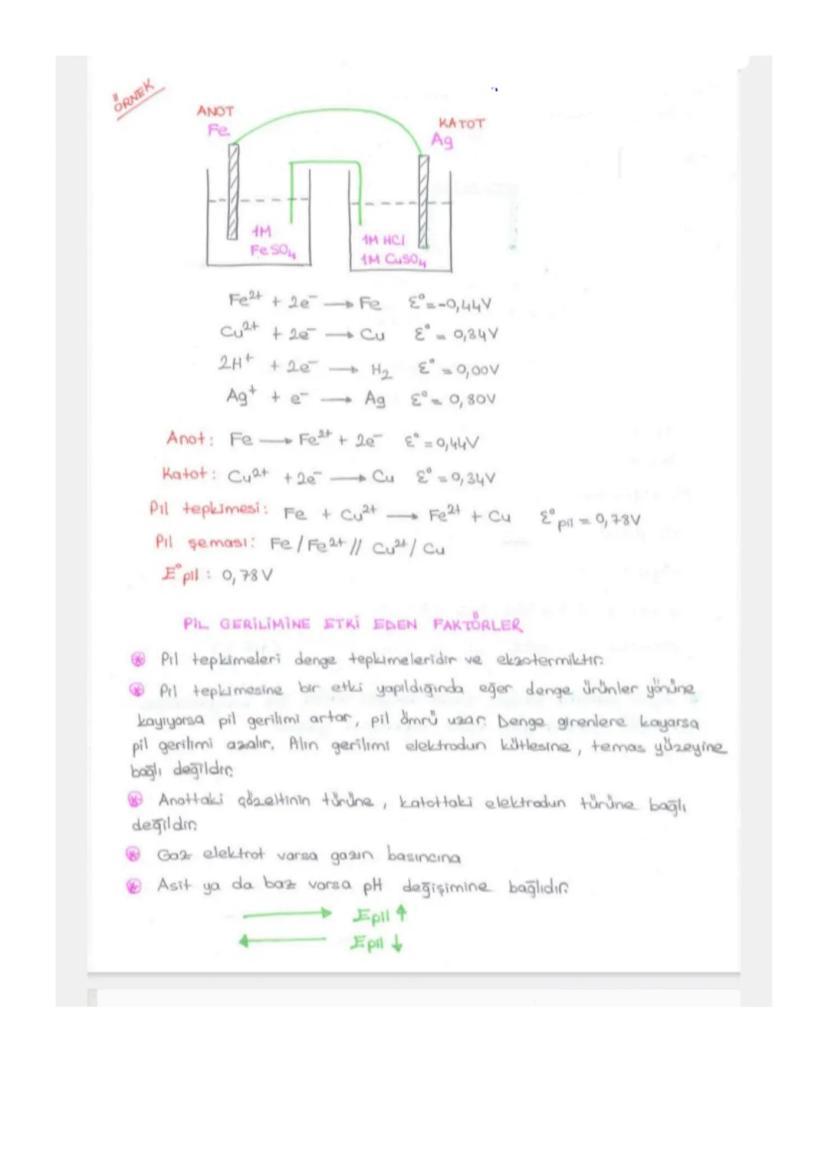 ÖRNEK
ANOT
Fe
KATOT
Ag
1M
FeSO₄
1M HCl
1M CuSO₄
Fe²⁺ + 2e⁻ → Fe ε° = -0,44V
Cu²⁺ + 2e⁻ → Cu ε° = 0,34V
2H⁺ + 2e⁻ → H₂ ε° = 0,00V
Ag⁺ + e⁻ → Ag ε° = 0,80V
Anot: Fe → Fe²⁺ + 2e⁻ ε° = 0,44V
Katot: Cu²⁺ + 2e⁻ → Cu ε° = 0,34V
Pil tepkimesi: Fe + Cu²⁺ → Fe²⁺ + Cu ε° pil = 0,78V
Pil şeması: Fe / Fe²⁺ // Cu²⁺ / Cu
E°pil : 0,78V
PİL GERİLİMİNE ETKİ EDEN FAKTÖRLER
Pil tepkimeleri denge tepkimeleridir ve ekzotermiktir.
Pil tepkimesine bir etki yapıldığında eğer denge ürünler yönüne
kayıyorsa pil gerilimi artar, pil ömrü uzar. Denge girenlere kayarsa
pil gerilimi azalır. Alın gerilimi elektrodun kütlesine, temas yüzeyine
bağlı değildir.
Anottaki çözeltinin türüne, katottaki elektrodun türüne bağlı
değildir.
Gaz elektrot varsa gazın basıncına
Asit ya da baz varsa pH değişimine bağlıdır.
→ Epil ↑
← Epil ↓